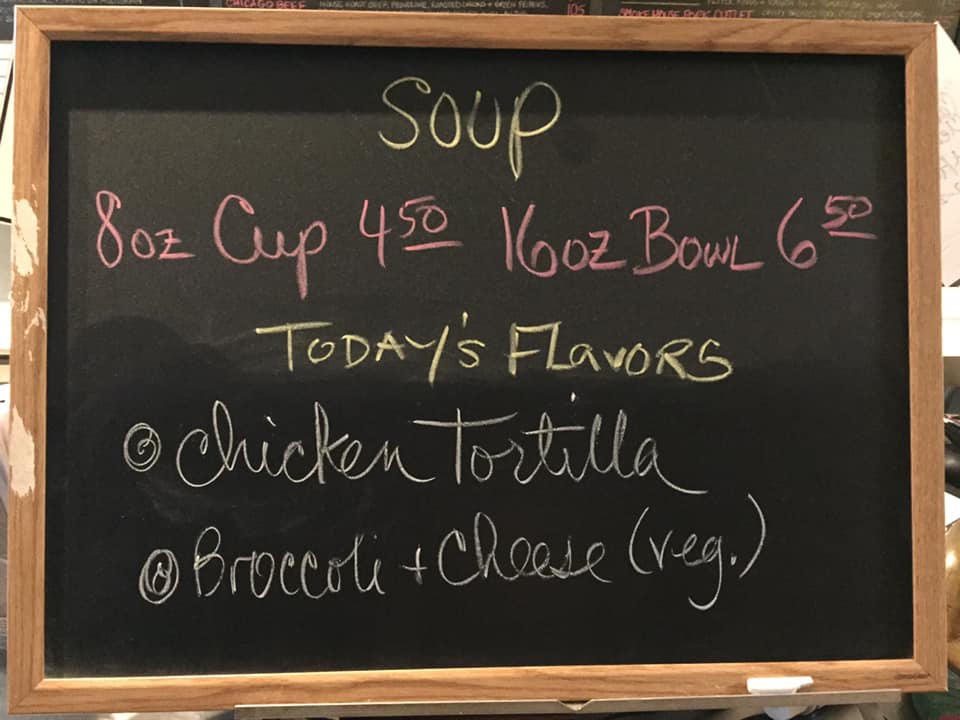 CHICAGO BEEF
105
SOUP
8oz Cup 4 50 16oz Bowl 6 50
TODAY'S FLAVORS
Chicken Tortilla
Broccoli + Cheese (veg.)